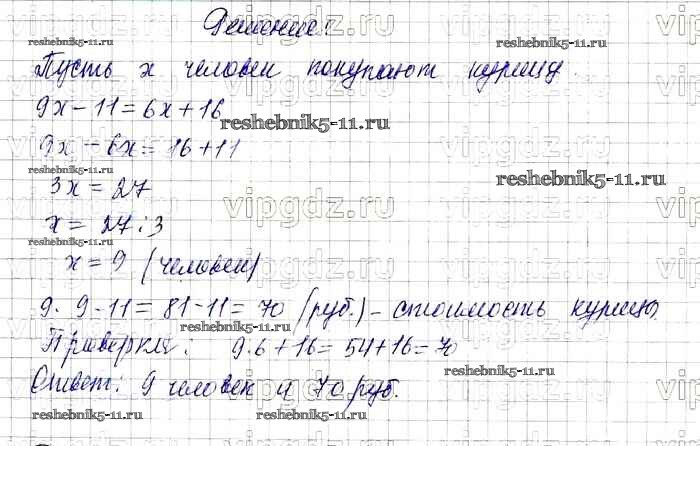 Решение:
Пусть x человек покупают курицу.
9x - 11 = 6x + 16
9x - 6x = 16 + 11
3x = 27
x = 27 : 3
x = 9 (человек)
9 · 9 - 11 = 81 - 11 = 70 (руб.) - стоимость курицы
Проверка: 9 · 6 + 16 = 54 + 16 = 70
Ответ: 9 человек и 70 руб.
vipgdz.ru
reshebnik5-11.ru
reshebnik5-11.ru
reshebnik5-11.ru
reshebnik5-11.ru
reshebnik5-11.ru
reshebnik5-11.ru
reshebnik5-11.ru
reshebnik5-11.ru
reshebnik5-11.ru